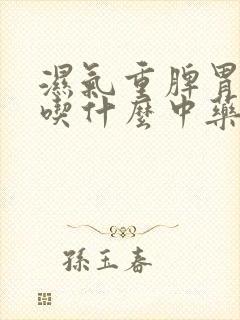 濕氣重脾胃
喫什麼中藥
孫玉春